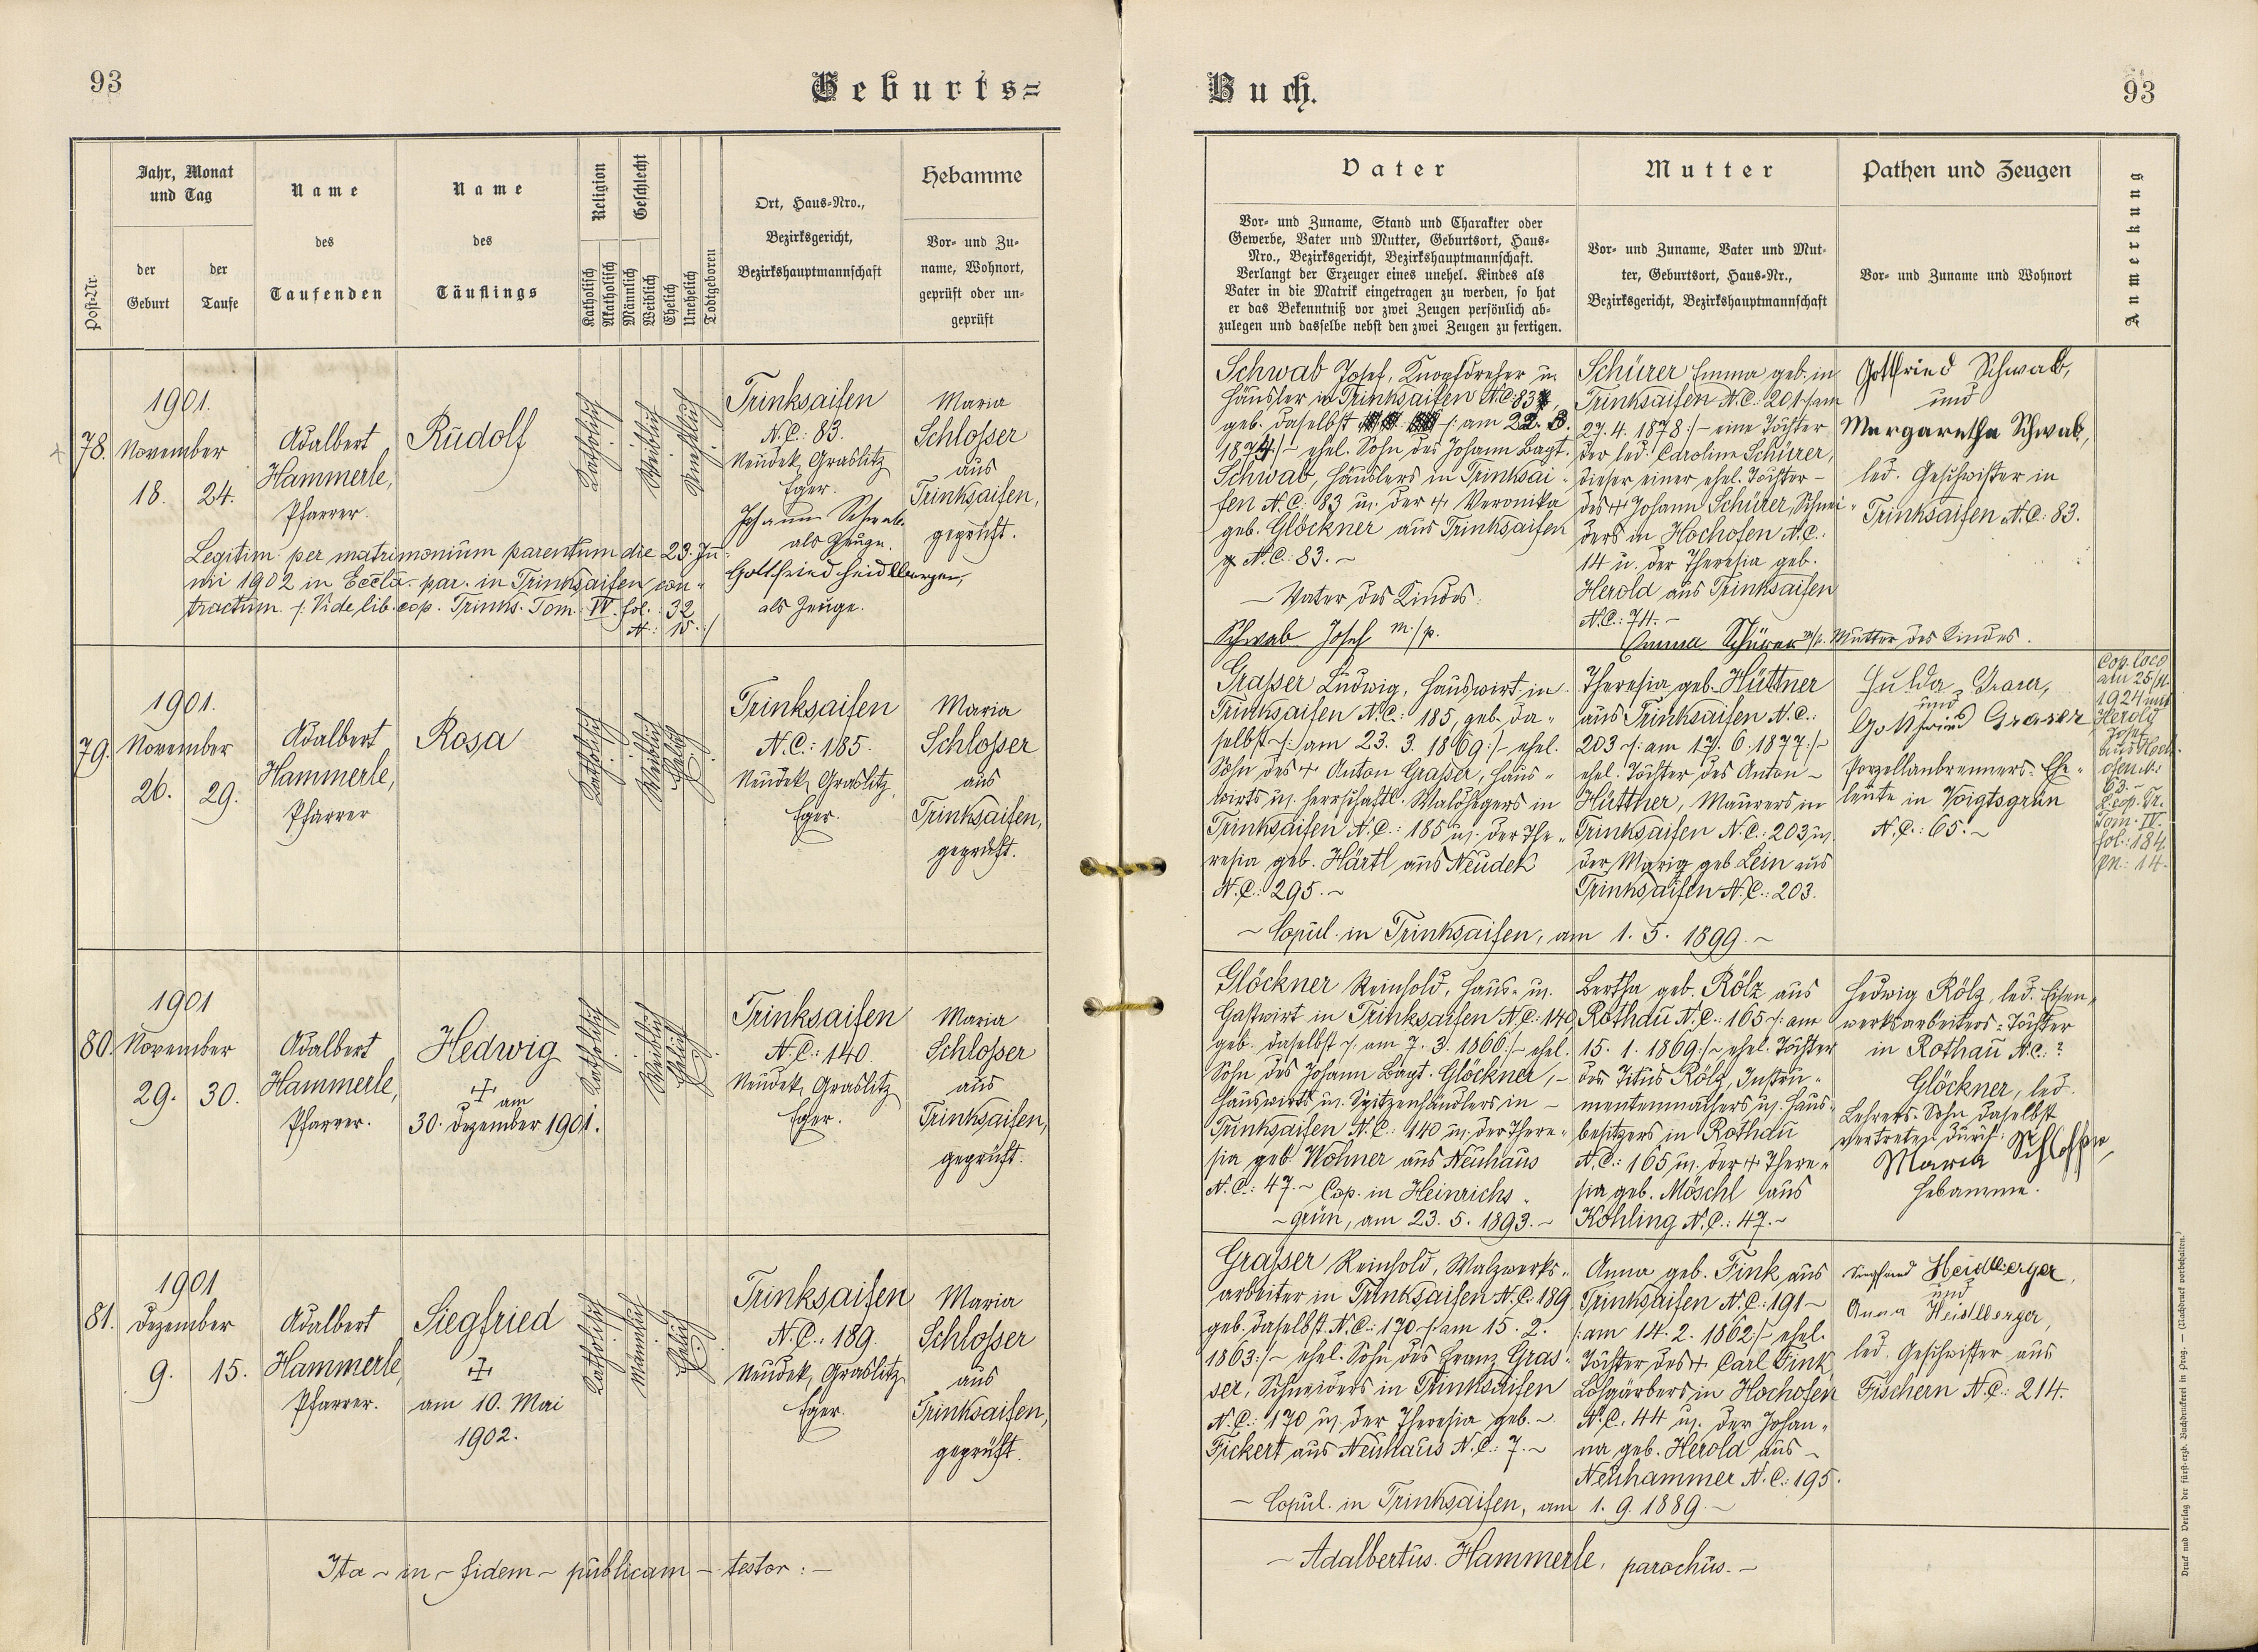 93
Geburts=
Jahr, Monat
und Tag
Name
Name
Religion
Geschlecht
Hebamme
Post-Nr.
der
Geburt
der
Taufe
des
Taufenden
des
Täuflings
Katholisch
Akatholisch
Männlich
Weiblich
Ehelich
Unehelich
Todtgeboren
Ort, Haus-Nro.,
Bezirksgericht,
Bezirkshauptmannschaft
Vor- und Zu-
name, Wohnort,
geprüft oder un-
geprüft
78.
1901.
November
18. 24.
Adalbert
Hammerle,
Pfarrer.
Rudolf
Katholisch
Weiblich
Unehelich
Trinksaifen
N.C.: 83.
Neudek, Graslitz
Eger.
Johann Schwab
als Zeuge.
Gottfried Heidlberger,
als Zeuge.
Maria
Schlosser
aus
Trinksaifen,
geprüft.
Legitim. per matrimonium parentum die 23. Ju-
ni 1902 in Eccla. par. in Trinksaifen con-
tractum. /: Vide lib. cop. Trinks. Tom. IV. fol. 32
N.: 15. :/
79.
1901.
November
26. 29.
Adalbert
Hammerle,
Pfarrer
Rosa
Katholisch
Weiblich
Ehelich
Trinksaifen
N.C.: 185.
Neudek, Graslitz,
Eger.
Maria
Schlosser
aus
Trinksaifen,
geprüft.
80.
1901
November
29. 30.
Adalbert
Hammerle,
Pfarrer.
Hedwig
am
30. Dezember 1901.
Katholisch
Weiblich
Ehelich
Trinksaifen
N.C.: 140.
Neudek, Graslitz
Eger.
Maria
Schlosser
aus
Trinksaifen,
geprüft.
81.
1901
Dezember
9. 15.
Adalbert
Hammerle,
Pfarrer.
Siegfried
am 10. Mai
1902.
Katholisch
Männlich
Ehelich
Trinksaifen
N.C.: 189.
Neudek, Graslitz
Eger.
Maria
Schlosser
aus
Trinksaifen,
geprüft.
Ita - in - fidem - publicam - testor : -
Buch.
93
Vater
Mutter
Pathen und Zeugen
Anmerkung
Vor- und Zuname, Stand und Charakter oder
Gewerbe, Vater und Mutter, Geburtsort, Haus-
Nro., Bezirksgericht, Bezirkshauptmannschaft.
Verlangt der Erzeuger eines unehel. Kindes als
Vater in die Matrik eingetragen zu werden, so hat
er das Bekenntniß vor zwei Zeugen persönlich ab-
zulegen und dasselbe nebst den zwei Zeugen zu fertigen.
Vor- und Zuname, Vater und Mut-
ter, Geburtsort, Haus-Nr.,
Bezirksgericht, Bezirkshauptmannschaft
Vor- und Zuname und Wohnort
Schwab Josef, Knopfdreher u.
Häusler in Trinksaifen N.C. 83,
geb. daselbst /: am 22. 3.
1874 :/- ehel. Sohn des Johann Bapt.
Schwab, Häuslers in Trinksai-
fen N.C.: 83 u. der + Veronika
geb. Glöckner aus Trinksaifen
N.C.: 83. -
- Vater des Kindes:
Schwab Josef m/p.
Schürer Emma geb. in
Trinksaifen N.C.: 201 /: am
27. 4. 1878 :/- eine Tochter
der led. Caroline Schürer,
dieser einer ehel. Tochter -
des + Johann Schürer, Schnei-
ders in Hochofen N.C.:
14 u. der Theresia geb.
Herold aus Trinksaifen
N.C.: 74. -
Emma Schürer m/p. Mutter des Kindes.
Gottfried Schwab,
und
Margaretha Schwab,
led. Geschwister in
Trinksaifen N.C.: 83.
Grasser Ludwig, Hauswirt in
Trinksaifen N.C.: 185, geb. da-
selbst /: am 23. 3. 1869 :/- ehel.
Sohn des + Anton Grasser, Haus-
wirts u. herrschaftl. Waldhegers in
Trinksaifen N.C.: 185 u. der The-
resia geb. Härtl aus Neudek
N.C.: 295. -
Theresia geb. Hüttner
aus Trinksaifen N.C.:
203 /: am 17. 6. 1877 :/-
ehel. Tochter des Anton -
Hüttner, Maurers in
Trinksaifen N.C.: 203 u.
der Maria geb. Lein aus
Trinksaifen N.C.: 203.
- Copul. in Trinksaifen, am 1. 5. 1899. -
Hulda Graser,
und
Gottfried Graser
Porzellanbrenners-Ehe-
leute in Voigtsgrün
N.C.: 65. -
Cop. loco
am 25/11.
1924 mit
Herold
Josef
aus Hoch-
ofen N.:
63. -
L. cop. Tr.
Tom. IV.
fol.: 184.
pn.: 14.
Glöckner Reinhold, Haus- u.
Gastwirt in Trinksaifen N.C.: 140,
geb. daselbst /: am 7. 3. 1866 :/- ehel.
Sohn des Johann Bapt. Glöckner, -
Hauswirts u. Spitzenhändlers in -
Trinksaifen N.C.: 140 u. der There-
sia geb. Wohner aus Neuhaus
N.C.: 47. - Cop. in Heinrichs-
- grün, am 23. 5. 1893. -
Bertha geb. Rölz aus
Rothau N.C.: 165 /: am
15. 1. 1869 :/- ehel. Tochter
des Titus Rölz, Instru-
mentenmachers u. Haus-
besitzers in Rothau
N.C.: 165 u. der + There-
sia geb. Möschl aus
Kohling N.C.: 47. -
Hedwig Rölz, led. Eisen-
werksarbeiters-Tochter
in Rothau N.C.: ?
Glöckner, led.
Lehrers-Sohn daselbst
vertreten durch:
Maria Schlosser,
Hebamme.
Grasser Reinhold, Walzwerks-
arbeiter in Trinksaifen N.C.: 189
geb. daselbst N.C.: 170 /: am 15. 2.
1863 :/- ehel. Sohn des Franz Gras-
ser, Schneiders in Trinksaifen
N.C.: 170 u. der Theresia geb. -
Fickert aus Neuhaus N.C.: 7. -
Anna geb. Fink aus
Trinksaifen N.C.: 191 -
/: am 14. 2. 1862 :/- ehel.
Tochter des + Carl Fink,
Lohgärbers in Hochofen
N.C.: 44 u. der Johan-
na geb. Herold aus -
Neuhammer N.C.: 195.
- Copul. in Trinksaifen, am 1. 9. 1889. -
Heidlberger,
und
Anna Heidlberger,
led. Geschwister aus
Fischern N.C.: 214.
- Adalbertus Hammerle, parochus. -
Druck und Verlag der fürst-erzb. Buchdruckerei in Prag. — (Nachdruck vorbehalten.)